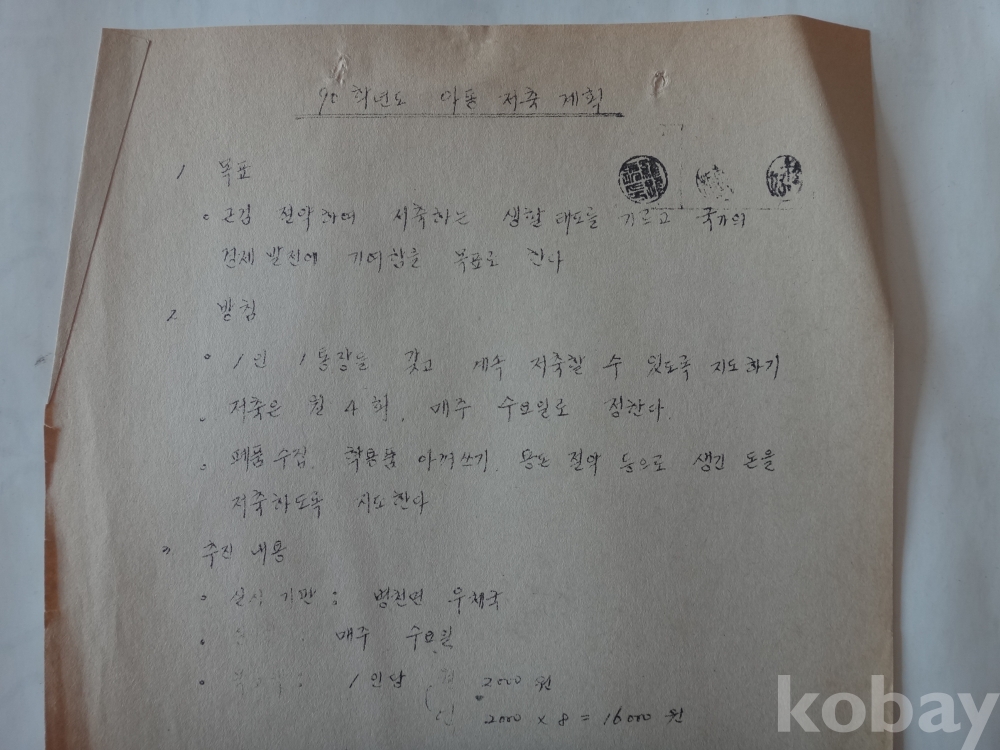 90 학년도 아동 저축 계획
1 목표
○ 근검 절약하며 저축하는 생활 태도를 기르고 국가의
경제 발전에 기여함을 목표로 한다
2 방침
○ 1인 1통장을 갖고 계속 저축할 수 있도록 지도하기
○ 저축은 월 4회, 매주 수요일로 정한다.
○ 폐품 수집 학용품 아껴쓰기. 용돈 절약 등으로 생긴 돈을
저축하도록 지도한다
3 추진 내용
○ 실시 기관 : 병천면 우체국
○ 매주 수요일
○ 1인당 월 2000원
년 2000 x 8 = 16000 원
kobay